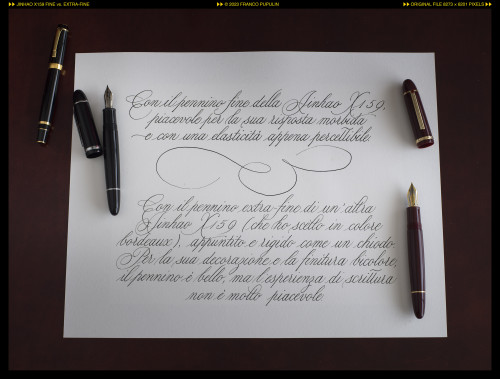 JINHAO X159 FINE vs. EXTRA-FINE
© 2023 FRANCO PUPULIN
ORIGINAL FILE 8273 × 6201 PIXELS
Con il pennino fine della Jinhao X159,
piacevole per la sua risposta morbida
e con una elasticità appena percettibile.
Con il pennino extra-fine di un'altra
Jinhao X159 (che ho scelto in colore
bordeaux), appuntito e rigido come un chiodo.
Per la sua decorazione e la finitura bicolore,
il pennino è bello, ma l'esperienza di scrittura
non è molto piacevole